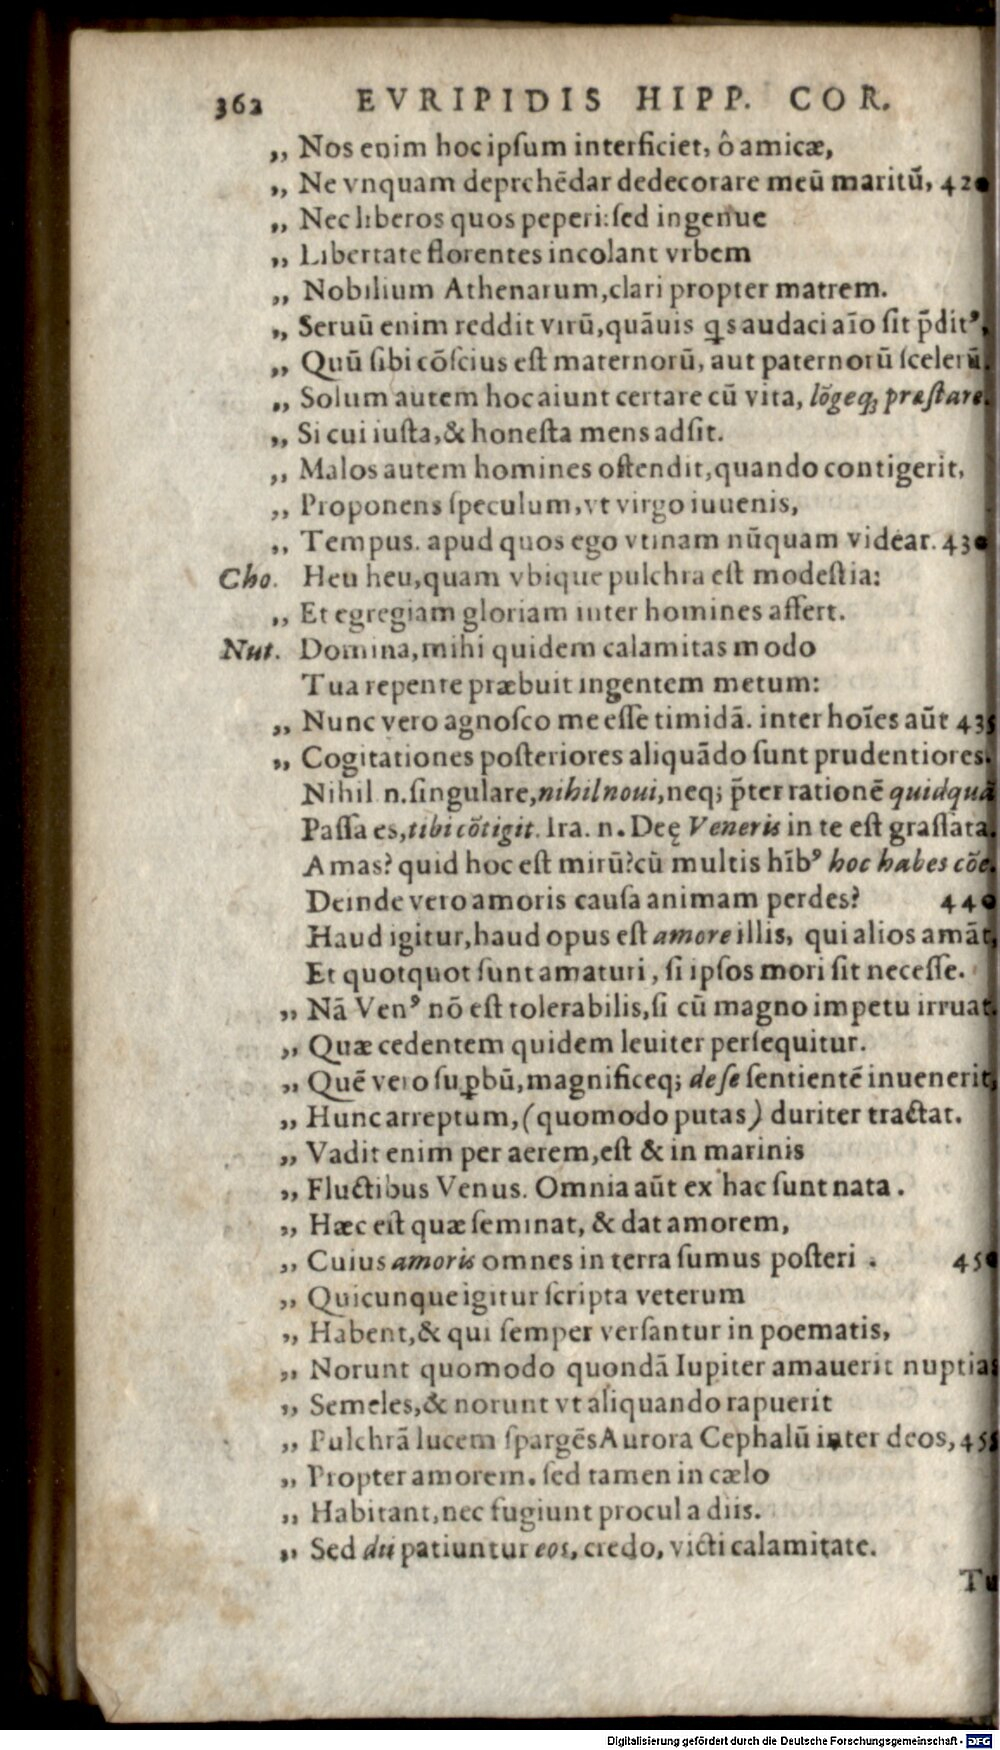 362 EVRIPIDIS HIPP. COR.
„ Nos enim hoc ipſum interficiet, ô amicæ,
„ Ne vnquam deprehēdar dedecorare meū maritū, 420
„ Nec liberos quos peperi: ſed ingenue
„ Libertate florentes incolant vrbem
„ Nobilium Athenarum, clari propter matrem.
„ Seruū enim reddit virū, quāuis ꝗs audaci aīo ſit p̄ditꝰ,
„ Quū ſibi cōſcius eſt maternorū, aut paternorū ſcelerū.
„ Solum autem hoc aiunt certare cū vita, lōgeq; præſtare.
„ Si cui iuſta, & honeſta mens adſit.
„ Malos autem homines oſtendit, quando contigerit,
„ Proponens ſpeculum, vt virgo iuuenis,
„ Tempus. apud quos ego vtinam nūquam videar. 430
Cho. Heu heu, quam vbique pulchra eſt modeſtia:
„ Et egregiam gloriam inter homines affert.
Nut. Domina, mihi quidem calamitas modo
Tua repente præbuit ingentem metum:
„ Nunc vero agnoſco me eſſe timidā. inter hoīes aūt 435
„ Cogitationes poſteriores aliquādo ſunt prudentiores.
Nihil n. ſingulare, nihil noui, neq; p̄ter rationē quidquā
Paſſa es, tibi cōtigit. Ira. n. Deę Veneris in te eſt graſſata.
Amas? quid hoc eſt mirū? cū multis hībꝰ hoc habes cōe.
Deinde vero amoris cauſa animam perdes? 440
Haud igitur, haud opus eſt amore illis, qui alios amāt,
Et quotquot ſunt amaturi, ſi ipſos mori ſit neceſſe.
„ Nā Venꝰ nō eſt tolerabilis, ſi cū magno impetu irruat.
„ Quæ cedentem quidem leuiter perſequitur.
„ Quē vero ſuꝑbū, magnificeq; de ſe ſentientē inuenerit,
„ Hunc arreptum, (quomodo putas) duriter tractat.
„ Vadit enim per aerem, eſt & in marinis
„ Fluctibus Venus. Omnia aūt ex hac ſunt nata.
„ Hæc eſt quæ ſeminat, & dat amorem,
„ Cuius amoris omnes in terra ſumus poſteri. 450
„ Quicunque igitur ſcripta veterum
„ Habent, & qui ſemper verſantur in poematis,
„ Norunt quomodo quondā Iupiter amauerit nuptias
„ Semeles, & norunt vt aliquando rapuerit
„ Pulchrā lucem ſpargēs Aurora Cephalū inter deos, 455
„ Propter amorem. ſed tamen in cælo
„ Habitant, nec fugiunt procul a diis.
„ Sed dii patiuntur eos, credo, victi calamitate.
Tu
Digitalisierung gefördert durch die Deutsche Forschungsgemeinschaft - DFG